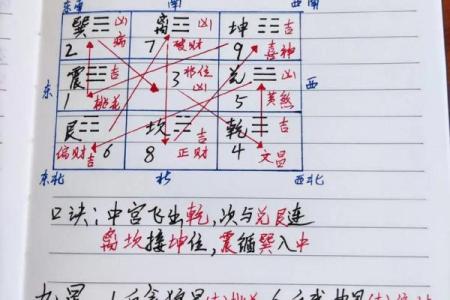 东南 南 西南
巽☴凶 离☲凶 坤☷吉
2 病 7 破财 9 喜神
东 震☳吉 3 凶 兑☱凶 西
1 桃花 5 黄煞
艮☶ 坎☵ 乾☰吉
偏财吉 6 8 正财 4 文昌
东北 北 西北
口诀:中宫飞出乾,次与兑艮连
离坎接坤位,震循巽入中
九星